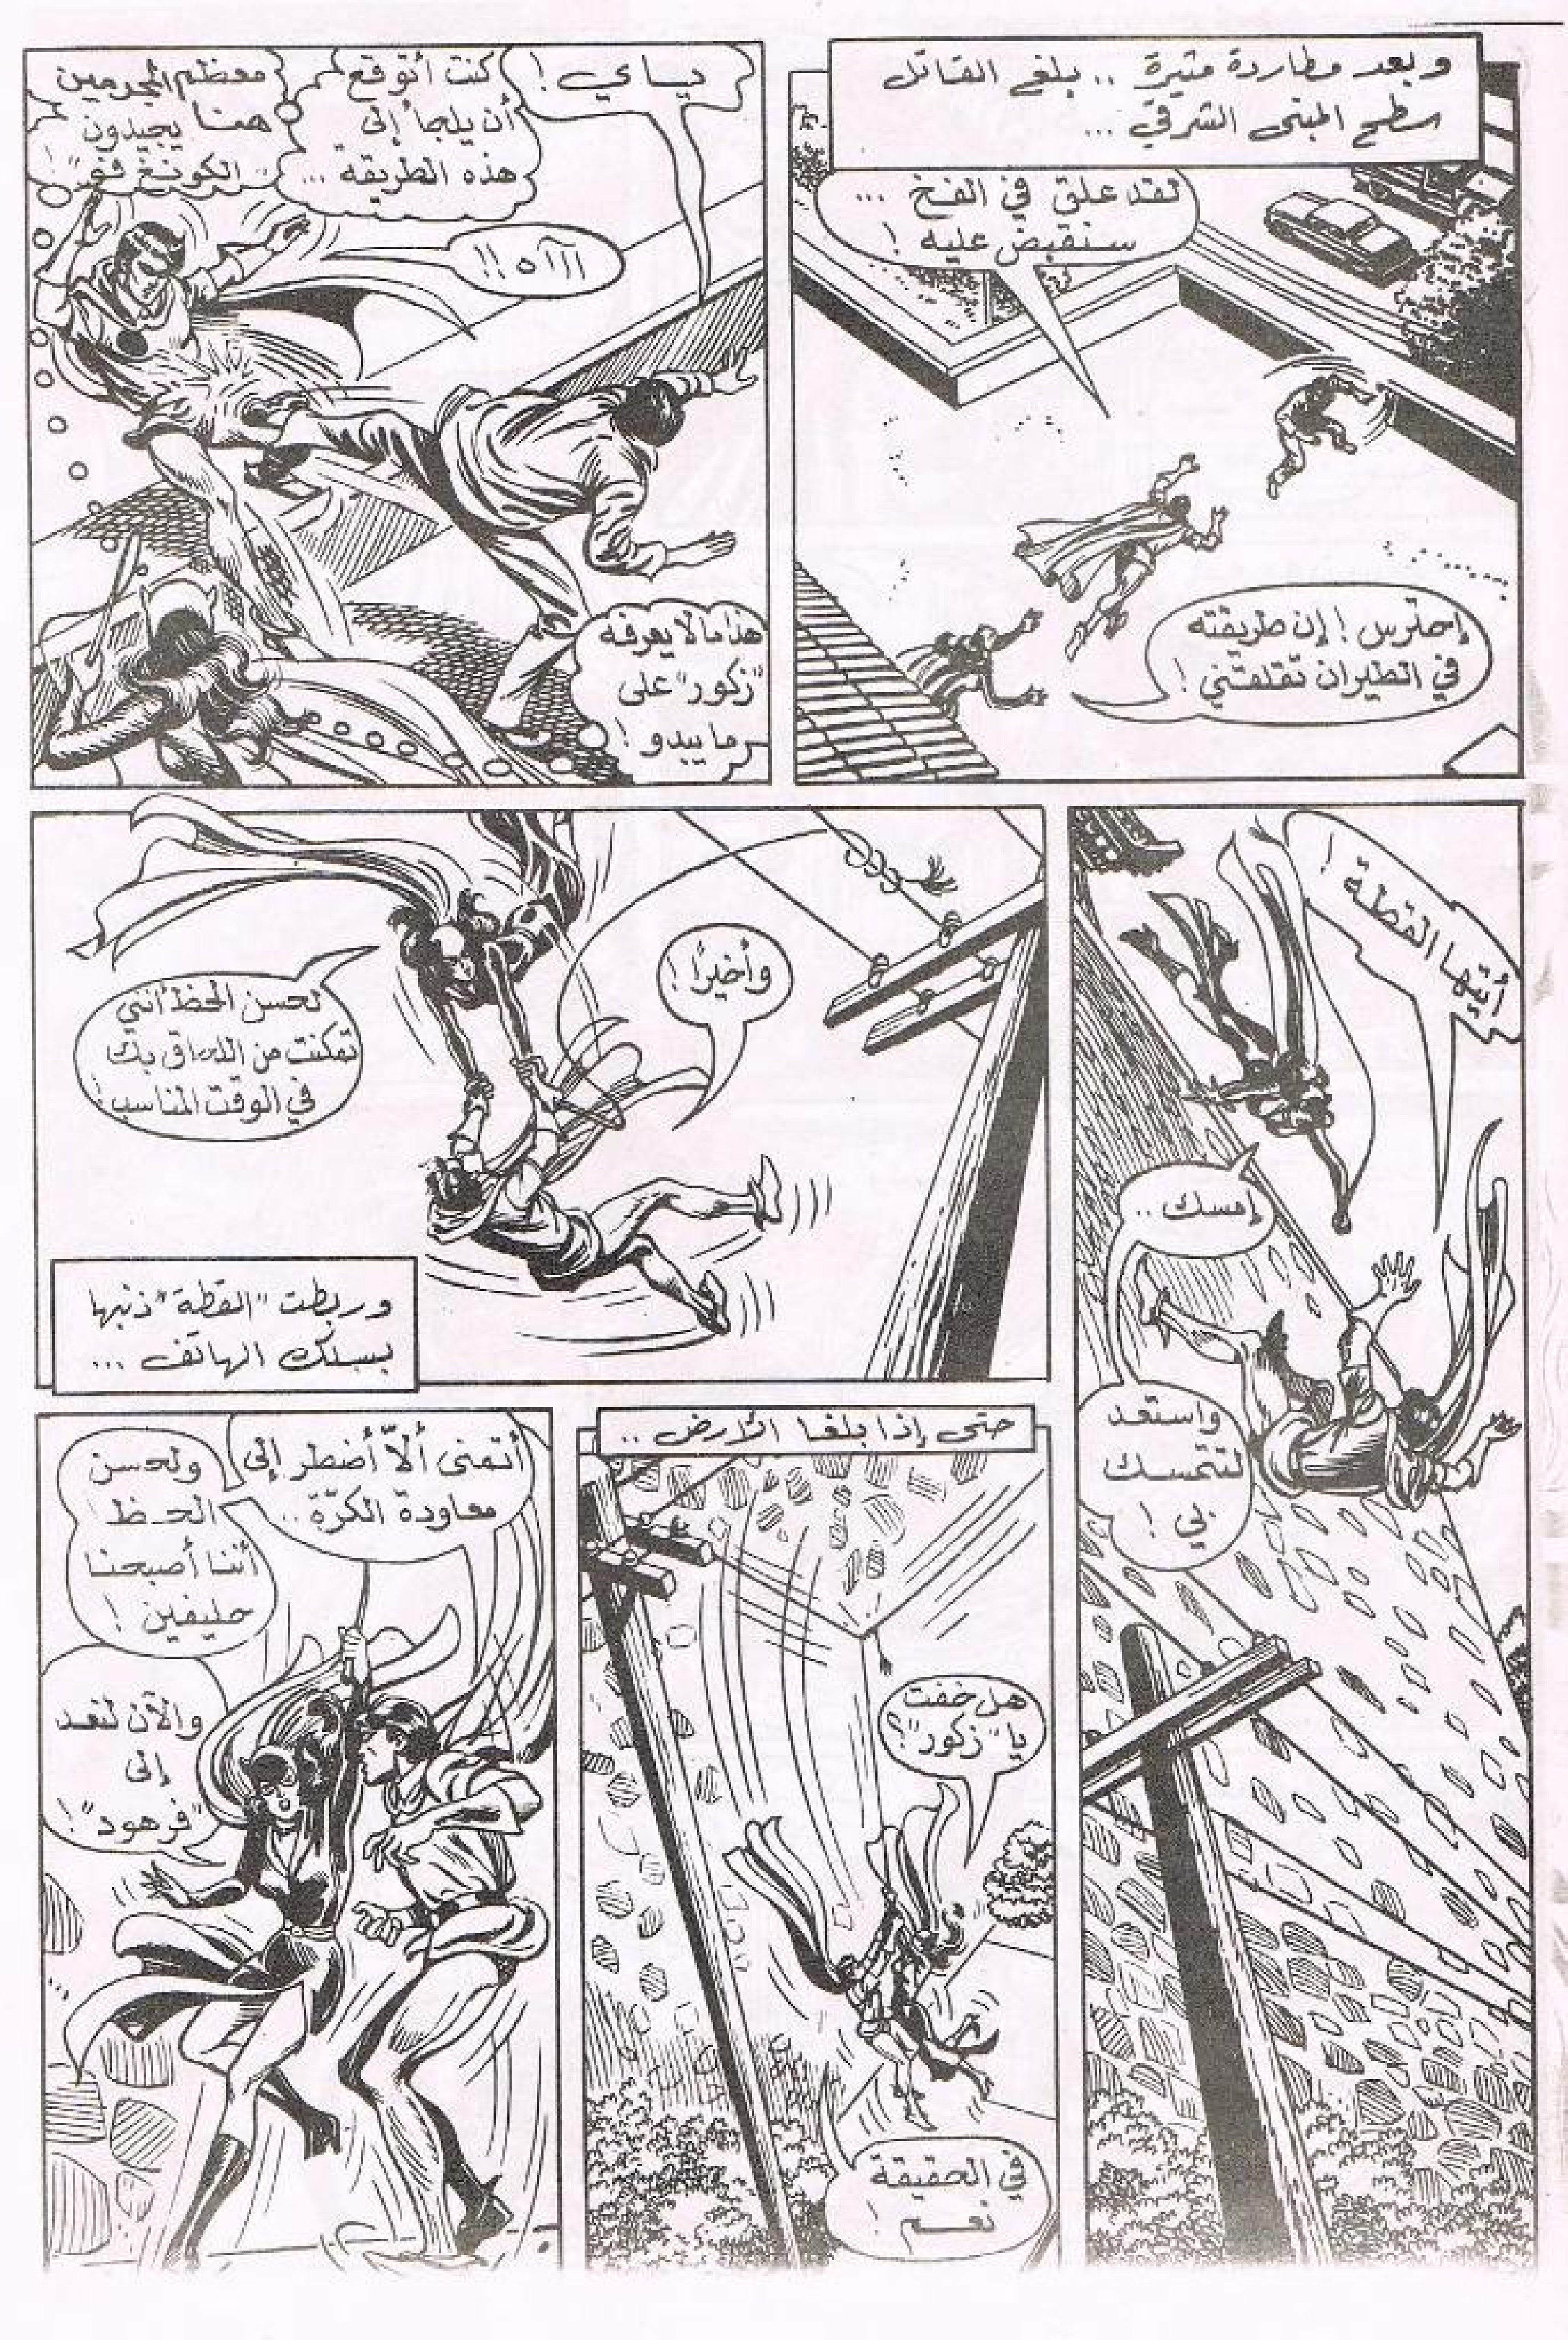 وبعد مطاردة مثيرة .. بلغ القاتل
سطح المبنى الشرقي ...
لقد علق في الفخ ...
سنقبض عليه !
إحترس ! إن طريقته
في الطيران تقلقني !
ياي !
كنت أتوقع
أن يلجأ إلى
هذه الطريقة ...
معظم المجرمين
هنا يجيدون
"الكونغ فو" !
آآآه !!
هذا ما لا يعرفه
"زكور" على
ما يبدو !
أيتها القطة !
إمسك ..
واستعد
لتتمسك
بي !
وأخيرًا !
لحسن الحظ أنني
تمكنت من اللحاق بك
في الوقت المناسب !
وربطت "القطة" ذنبها
بسلك الهاتف ...
حتى إذا بلغا الأرض ..
هل خفت
يا "زكور"؟
في الحقيقة
نعم !
أتمنى ألاّ أضطر إلى
معاودة الكرّة ..
ولحسن
الحظ
أننا أصبحنا
حليفين !
والآن لنعد
إلى
"فرهود" !